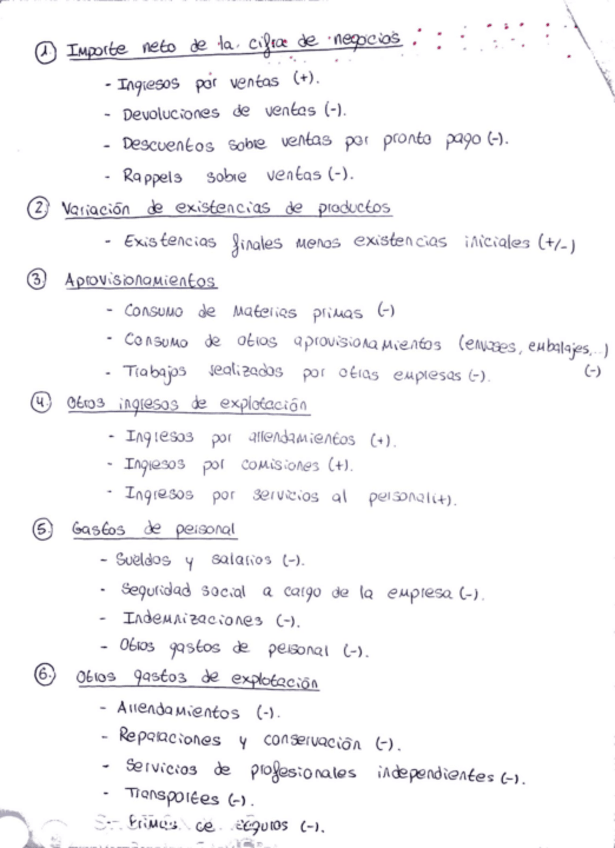 1. Importe neto de la cifra de negocios
- Ingresos por ventas (+).
- Devoluciones de ventas (-).
- Descuentos sobre ventas por pronto pago (-).
- Rappels sobre ventas (-).
2. Variación de existencias de productos
- Existencias finales menos existencias iniciales (+/-)
3. Aprovisionamientos
- Consumo de materias primas (-)
- Consumo de otros aprovisionamientos (envases, embalajes,..)
(-)
- Trabajos realizados por otras empresas (-).
4. Otros ingresos de explotación
- Ingresos por arrendamientos (+).
- Ingresos por comisiones (+).
- Ingresos por servicios al personal (+).
5. Gastos de personal
- Sueldos y salarios (-).
- Seguridad social a cargo de la empresa (-).
- Indemnizaciones (-).
- Otros gastos de personal (-).
6. Otros gastos de explotación
- Arrendamientos (-).
- Reparaciones y conservación (-).
- Servicios de profesionales independientes (-).
- Transportes (-).
- Primas de seguros (-).